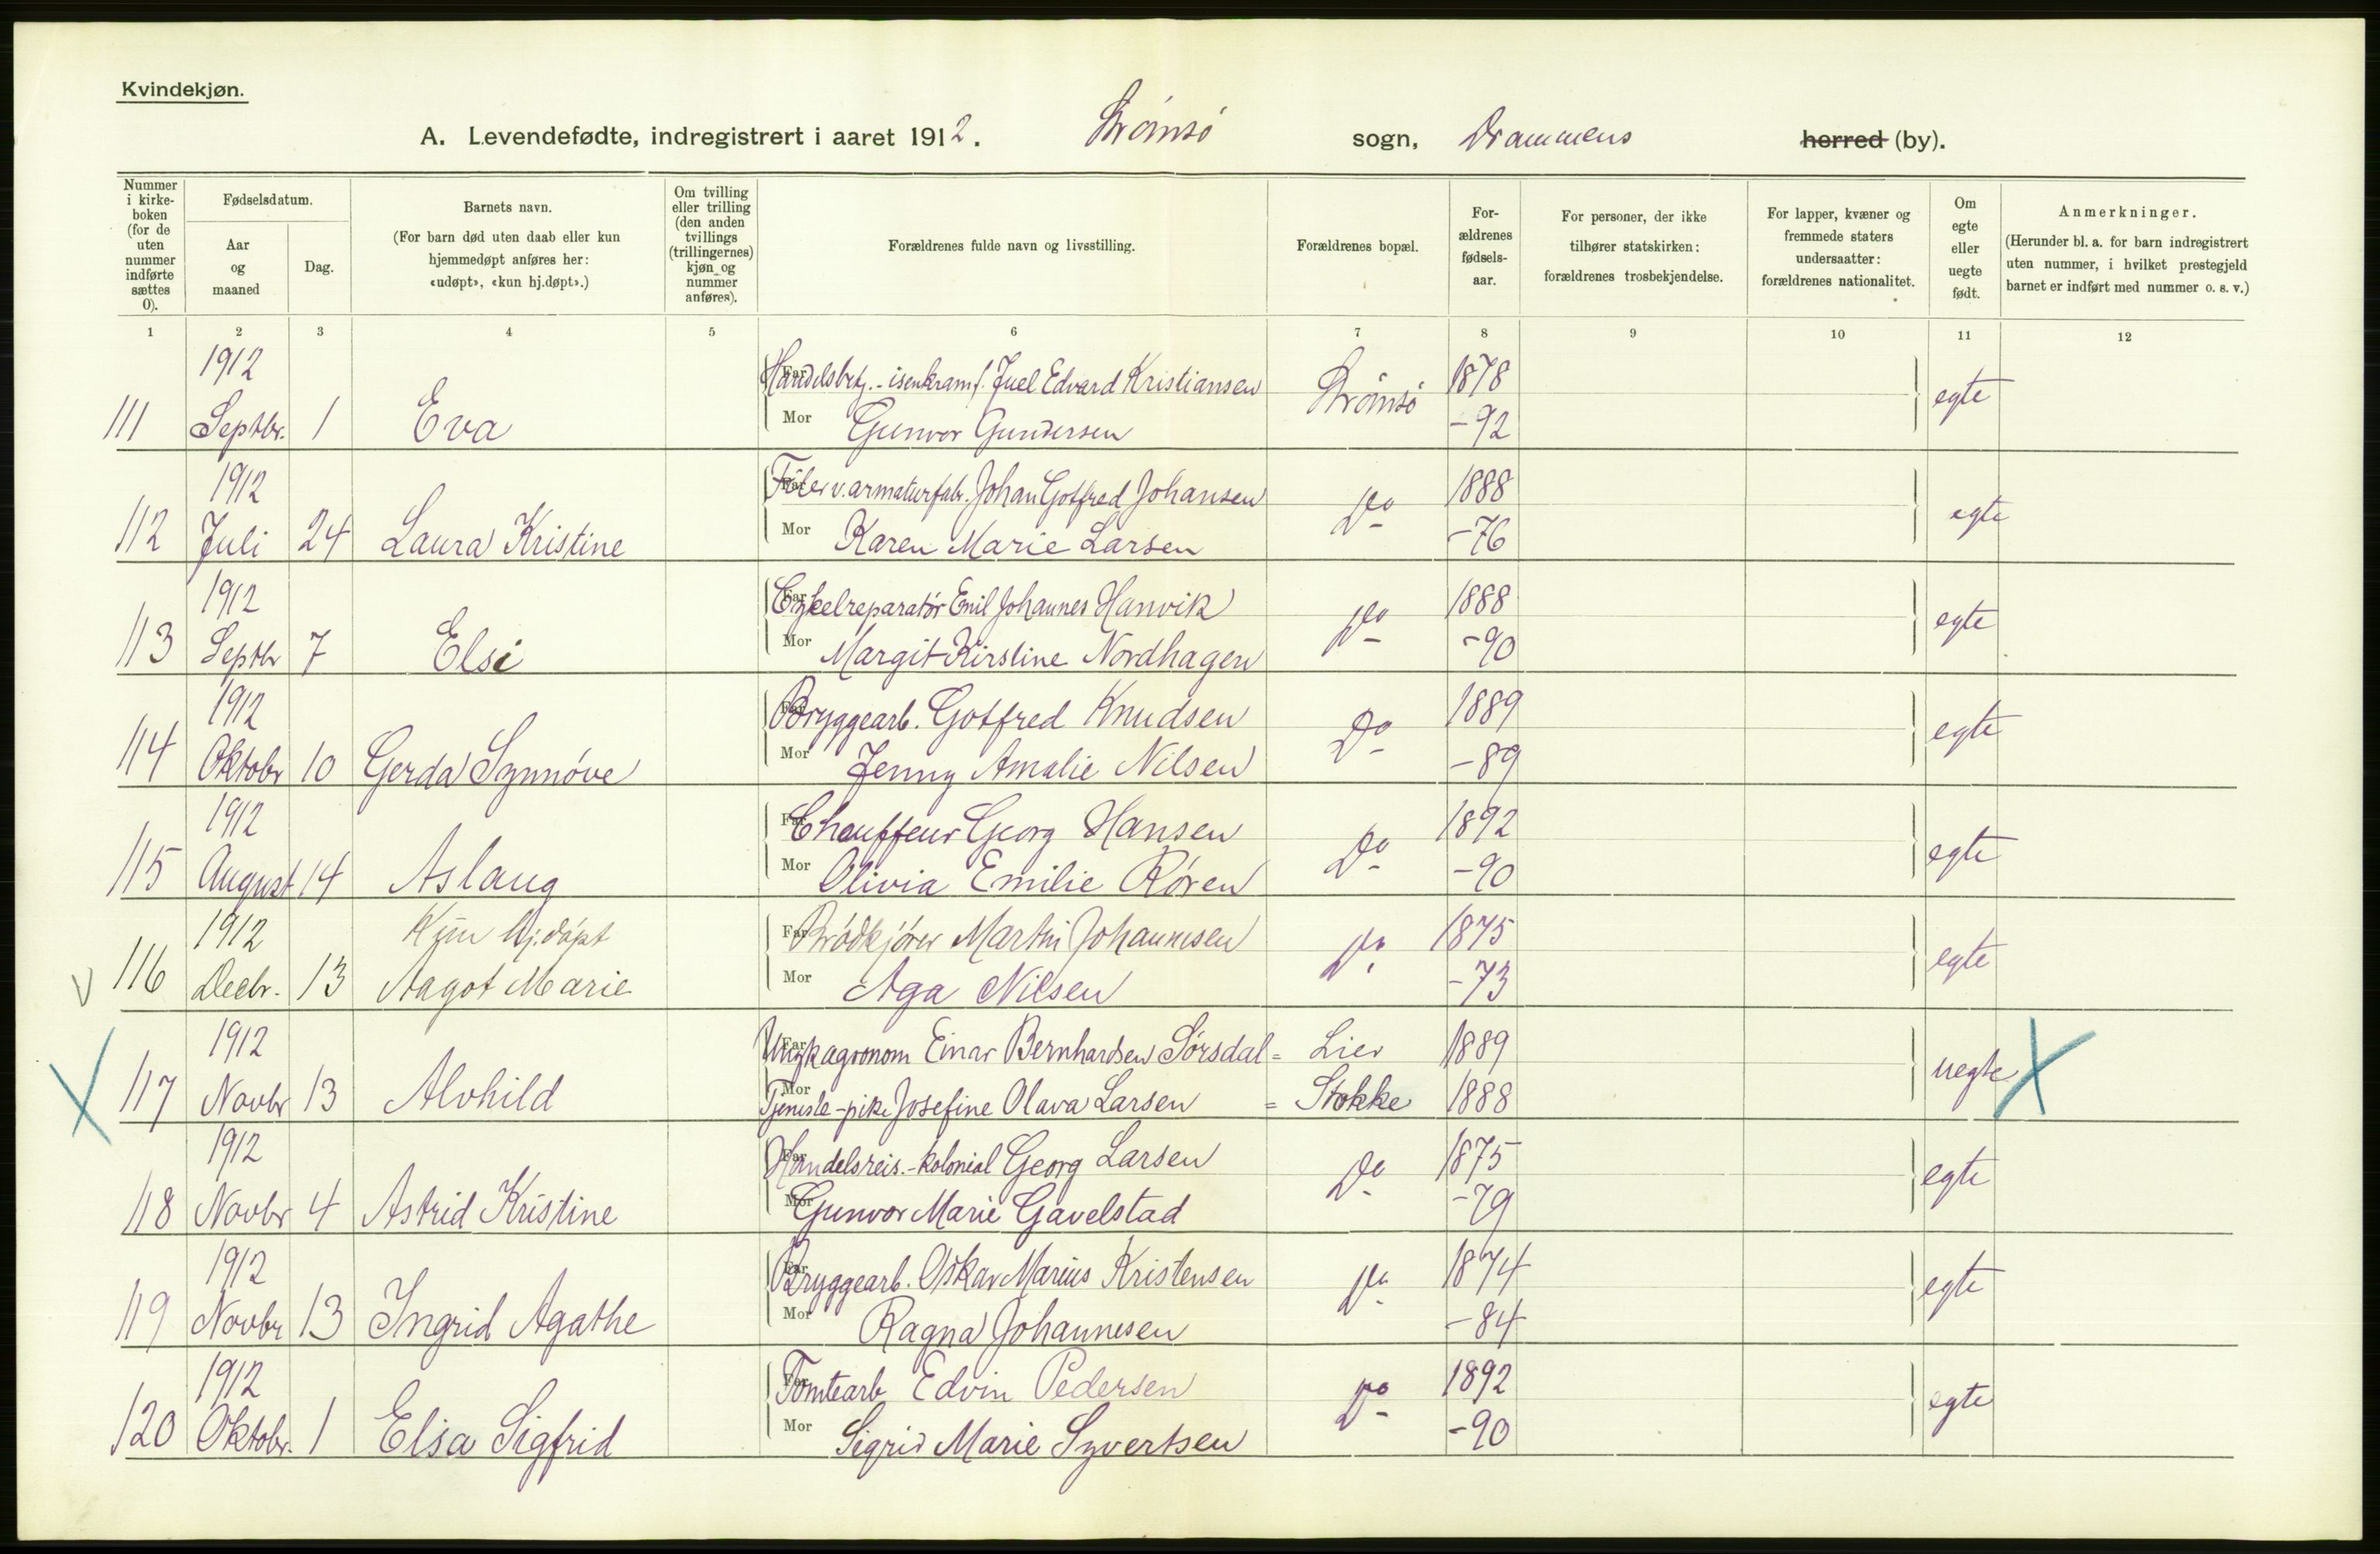 Kvindekjøn.
A. Levendefødte, indregistrert i aaret 1912. Strømsø sogn, Drammens herred (by).
Nummer i kirke-boken (for de uten nummer indførte sættes 0).
Fødselsdatum.
Aar og maaned
Dag.
Barnets navn.
(For barn død uten daab eller kun hjemmedøpt anføres her: «udøpt», «kun hj.døpt».)
Om tvilling eller trilling (den anden tvillings (trillingernes) kjøn og nummer anføres).
Forældrenes fulde navn og livsstilling.
Forældrenes bopæl.
For-ældrenes fødsels-aar.
For personer, der ikke tilhører statskirken: forældrenes trosbekjendelse.
For lapper, kvæner og fremmede staters undersaatter: forældrenes nationalitet.
Om egte eller uegte født.
Anmerkninger.
(Herunder bl. a. for barn indregistrert uten nummer, i hvilket prestegjeld barnet er indført med nummer o. s. v.)
1 2 3 4 5 6 7 8 9 10 11 12
1912 Far Handelsbetj. - isenkramf. Juel Edvard Kristiansen Strømsø 1878 egte
111 Septbr. 1 Eva Mor Gunvor Gundersen -92
1912 Far Filer v. armaturfabr. Johan Gotfred Johansen Do 1888 egte
112 Juli 24 Laura Kristine Mor Karen Marie Larsen -76
1912 Far Cykelreparatør Emil Johannes Hanvik Do 1888 egte
113 Septbr 7 Elsi Mor Margit Kirstine Nordhagen -90
1912 Far Bryggearb. Gotfred Knudsen Do 1889 egte
114 Oktobr 10 Gerda Synnøve Mor Jenny Amalie Nilsen -89
1912 Far Chauffeur Georg Hansen Do 1892 egte
115 August 14 Aslaug Mor Olivia Emilie Røren -90
1912 Kun hj.døpt Far Brødkjører Martin Johannesen Do 1875 egte
V 116 Decbr. 13 Aagot Marie Mor Aga Nilsen -73
1912 Far Ungk agronom Einar Bernhardsen Sørsdal = Lier 1889 uegte X
X 117 Novbr 13 Alvhild Mor Tjeneste-pike Josefine Olava Larsen = Stokke 1888
1912 Far Handelsreis. - kolonial Georg Larsen Do 1875 egte
118 Novbr 4 Astrid Kristine Mor Gunvor Marie Gavelstad -79
1912 Far Bryggearb. Oskar Marius Kristensen Do 1874 egte
119 Novbr 13 Ingrid Agathe Mor Ragna Johannesen -84
1912 Far Tomtearb Edvin Pedersen Do 1892 egte
120 Oktobr. 1 Elsa Sigfrid Mor Sigrid Marie Syvertsen -90